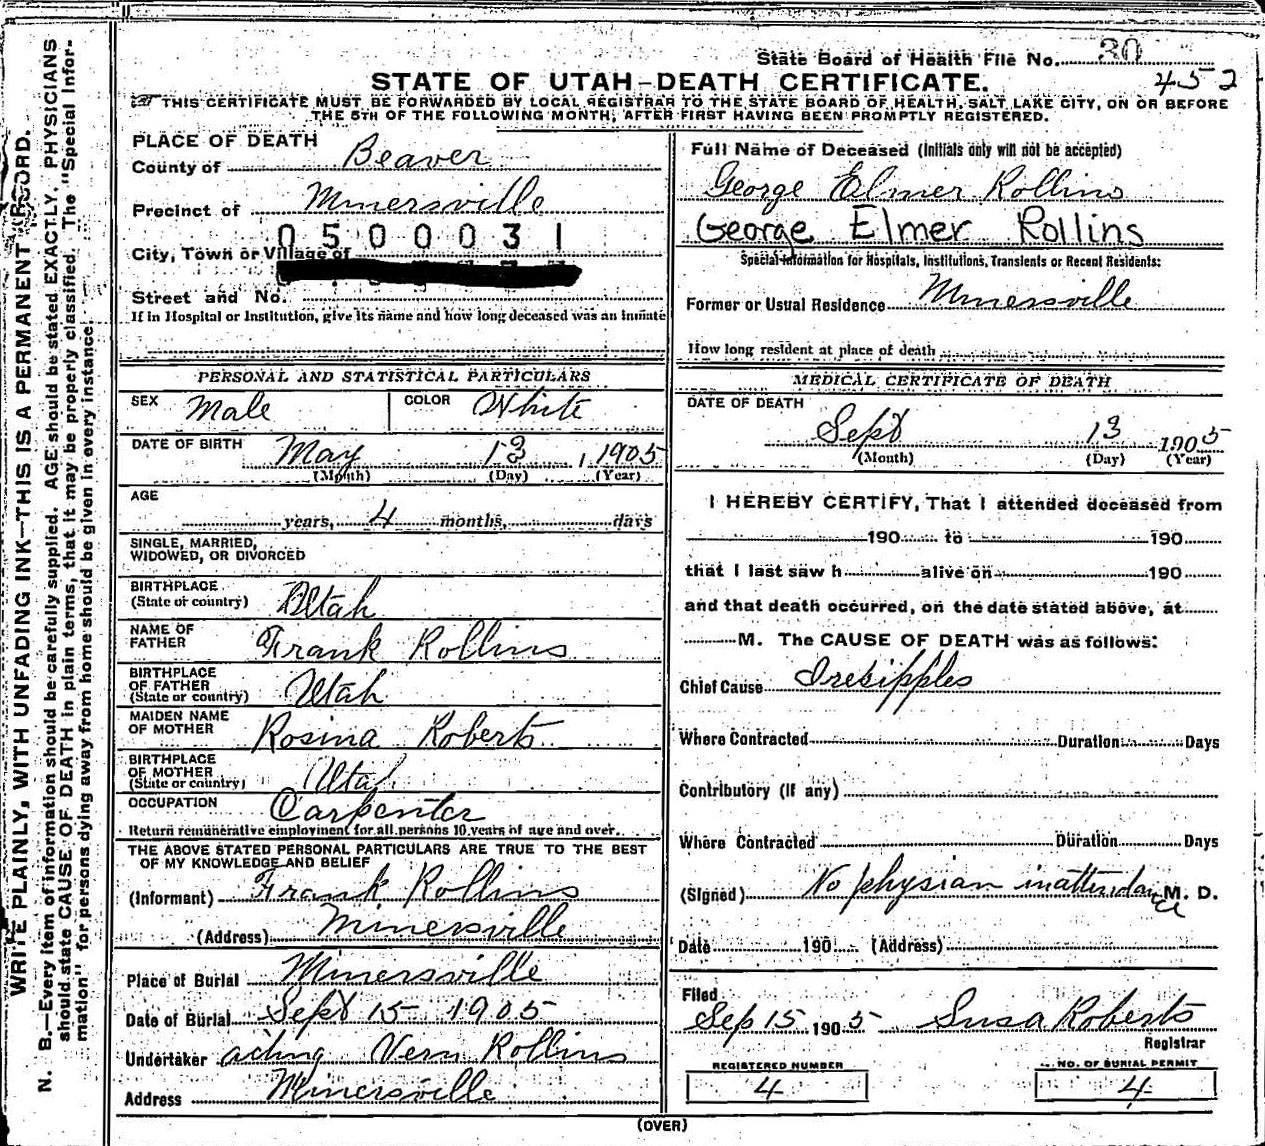 State Board of Health File No. 30
452
STATE OF UTAH-DEATH CERTIFICATE.
THIS CERTIFICATE MUST BE FORWARDED BY LOCAL REGISTRAR TO THE STATE BOARD OF HEALTH, SALT LAKE CITY, ON OR BEFORE
THE 5TH OF THE FOLLOWING MONTH, AFTER FIRST HAVING BEEN PROMPTLY REGISTERED.
WRITE PLAINLY, WITH UNFADING INK—THIS IS A PERMANENT RECORD.
N. B.—Every item of information should be carefully supplied. AGE should be stated EXACTLY. PHYSICIANS
should state CAUSE OF DEATH in plain terms, that it may be properly classified. The "Special Infor-
mation" for persons dying away from home should be given in every instance.
PLACE OF DEATH
County of Beaver
Precinct of Minersville
0500031
City, Town or Village of
Street and No.
If in Hospital or Institution, give its name and how long deceased was an inmate
PERSONAL AND STATISTICAL PARTICULARS
SEX Male COLOR White
DATE OF BIRTH May 13, 1905
(Month) (Day) (Year)
AGE
years, 4 months, days
SINGLE, MARRIED,
WIDOWED, OR DIVORCED
BIRTHPLACE
(State or country) Utah
NAME OF
FATHER Frank Rollins
BIRTHPLACE
OF FATHER
(State or country) Utah
MAIDEN NAME
OF MOTHER Rosina Roberts
BIRTHPLACE
OF MOTHER
(State or country) Utah
OCCUPATION Carpenter
Return remunerative employment for all persons 10 years of age and over.
THE ABOVE STATED PERSONAL PARTICULARS ARE TRUE TO THE BEST
OF MY KNOWLEDGE AND BELIEF
(Informant) Frank Rollins
(Address) Minersville
Place of Burial Minersville
Date of Burial Sept 15 1905
Undertaker acting Vern Rollins
Address Minersville
Full Name of Deceased (Initials only will not be accepted)
George Elmer Rollins
George Elmer Rollins
Special Information for Hospitals, Institutions, Transients or Recent Residents:
Former or Usual Residence Minersville
How long resident at place of death
MEDICAL CERTIFICATE OF DEATH
DATE OF DEATH
Sept 13 1905
(Month) (Day) (Year)
I HEREBY CERTIFY, That I attended deceased from
190 to 190
that I last saw h alive on 190
and that death occurred, on the date stated above, at
M. The CAUSE OF DEATH was as follows:
Chief Cause Iresipples
Where Contracted Duration Days
Contributory (if any)
Where Contracted Duration Days
(Signed) No physian inattendance M. D.
Date 190 (Address)
Filed
Sep 15 1905 Susa Roberts
Registrar
REGISTERED NUMBER
4
NO. OF BURIAL PERMIT
4
(OVER)